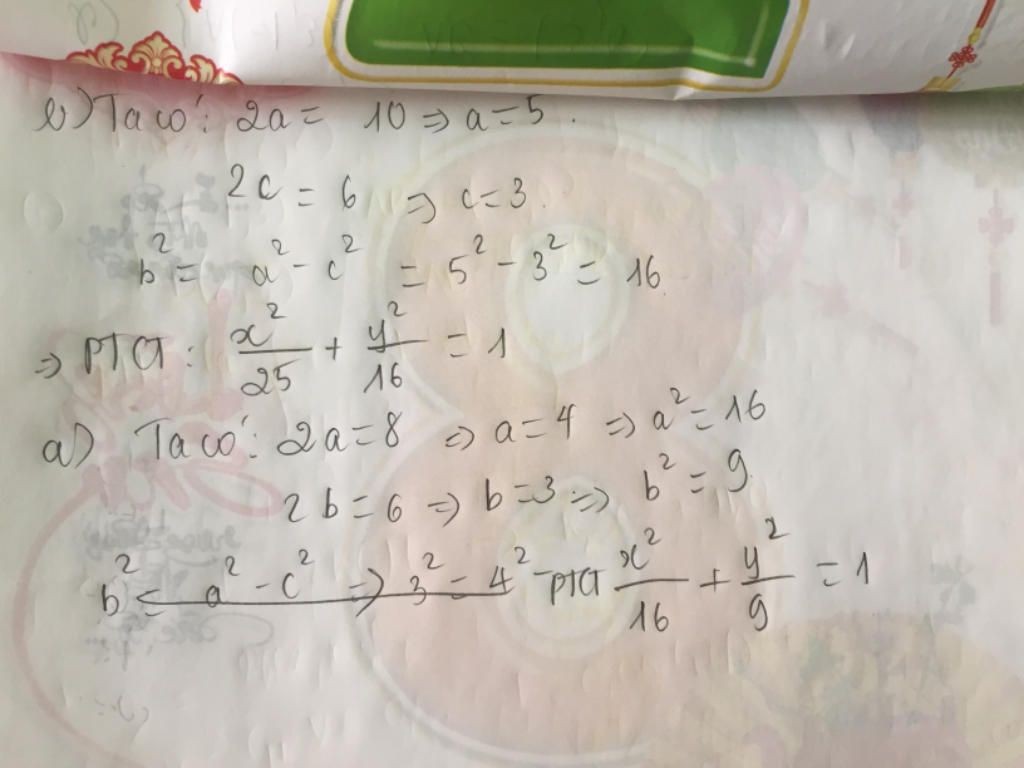 b) Ta có: 2a = 10 => a = 5.
2c = 6 => c = 3.
b² = a² - c² = 5² - 3² = 16
=> PTCT: x²/25 + y²/16 = 1
a) Ta có: 2a = 8 => a = 4 => a² = 16
2b = 6 => b = 3 => b² = 9
b² = a² - c² => 3² = 4² - PTCT x²/16 + y²/9 = 1